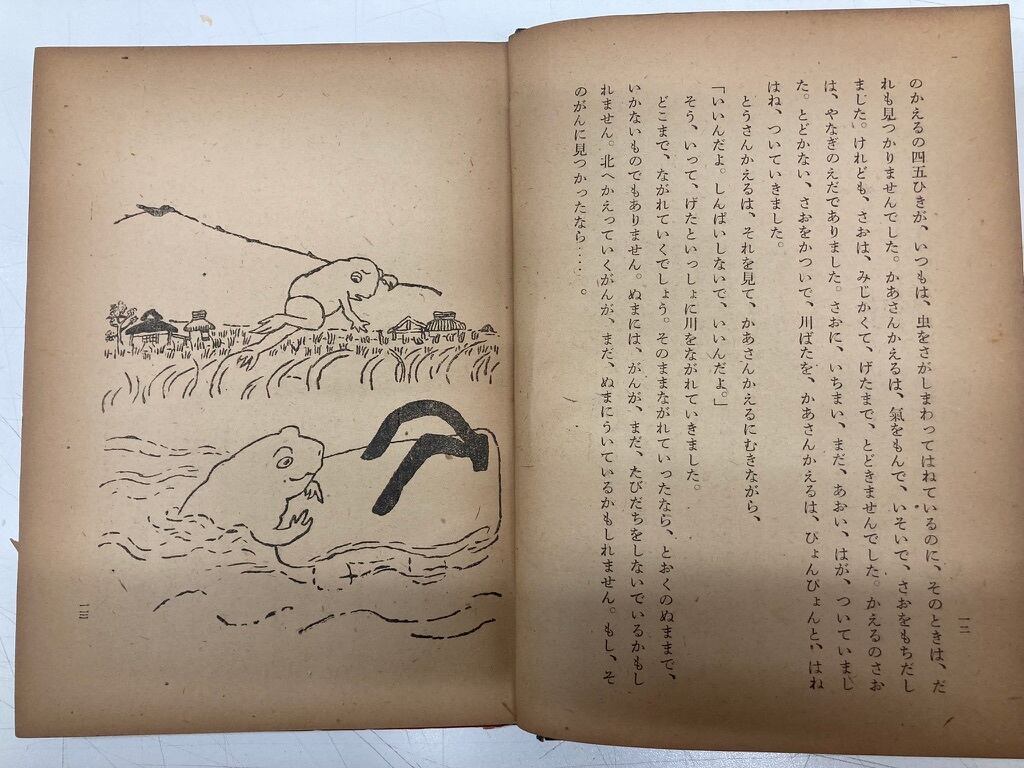 のかえるの四五ひきが、いつもは、虫をさがしまわってはねているのに、そのときは、だ
れも見つかりませんでした。かあさんかえるは、氣をもんで、いそいで、さおをもちだし
ました。けれども、さおは、みじかくて、げたまで、とどきませんでした。かえるのさお
は、やなぎのえだでありました。さおに、いちまい、まだ、あおい、はが、ついていまし
た。とどかない、さおをかついで、川ばたを、かあさんかえるは、ぴょんぴょんと、はね
はね、ついていきました。
とうさんかえるは、それを見て、かあさんかえるにむきながら、
「いいんだよ。しんぱいしないで、いいんだよ。」
そう、いって、げたといっしょに川をながれていきました。
どこまで、ながれていくでしょう。そのままながれていったなら、とおくのぬままで、
いかないものでもありません。ぬまには、がんが、まだ、たびだちをしないでいるかもし
れません。北へかえっていくがんが、まだ、ぬまにういているかもしれません。もし、そ
のがんに見つかったなら‥‥。
一二
一三